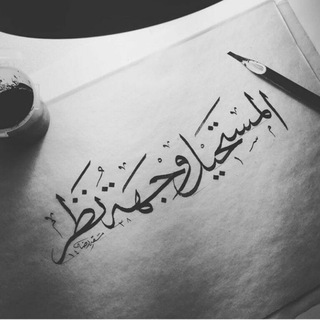 المستحيل وجهة نظر